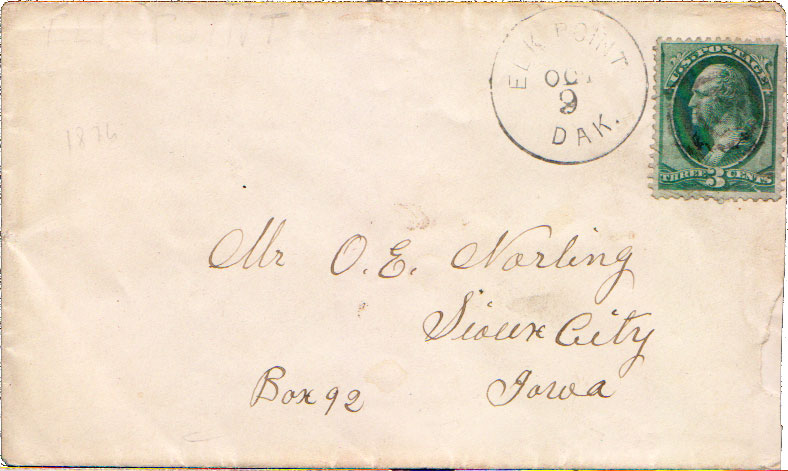 ELK POINT
OCT
9
DAK.
U.S. POSTAGE
THREE 3 CENTS
1876
Mr O. E. Norling
Sioux City
Box 92 Iowa